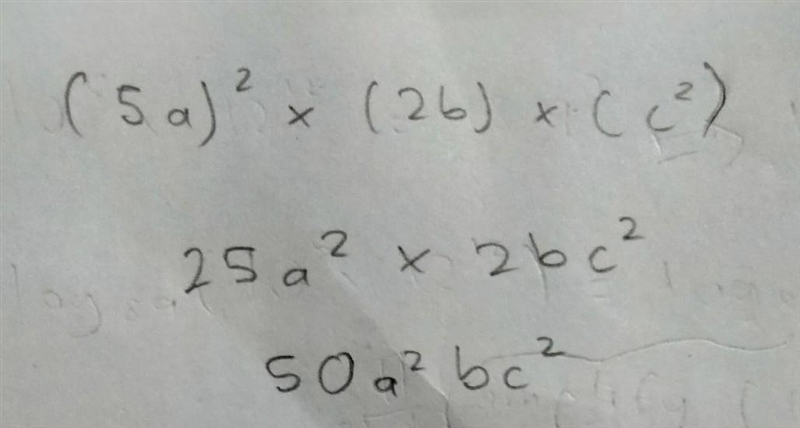 (5a)² × (2b) × (c²)
25a² × 2bc²
50a²bc²